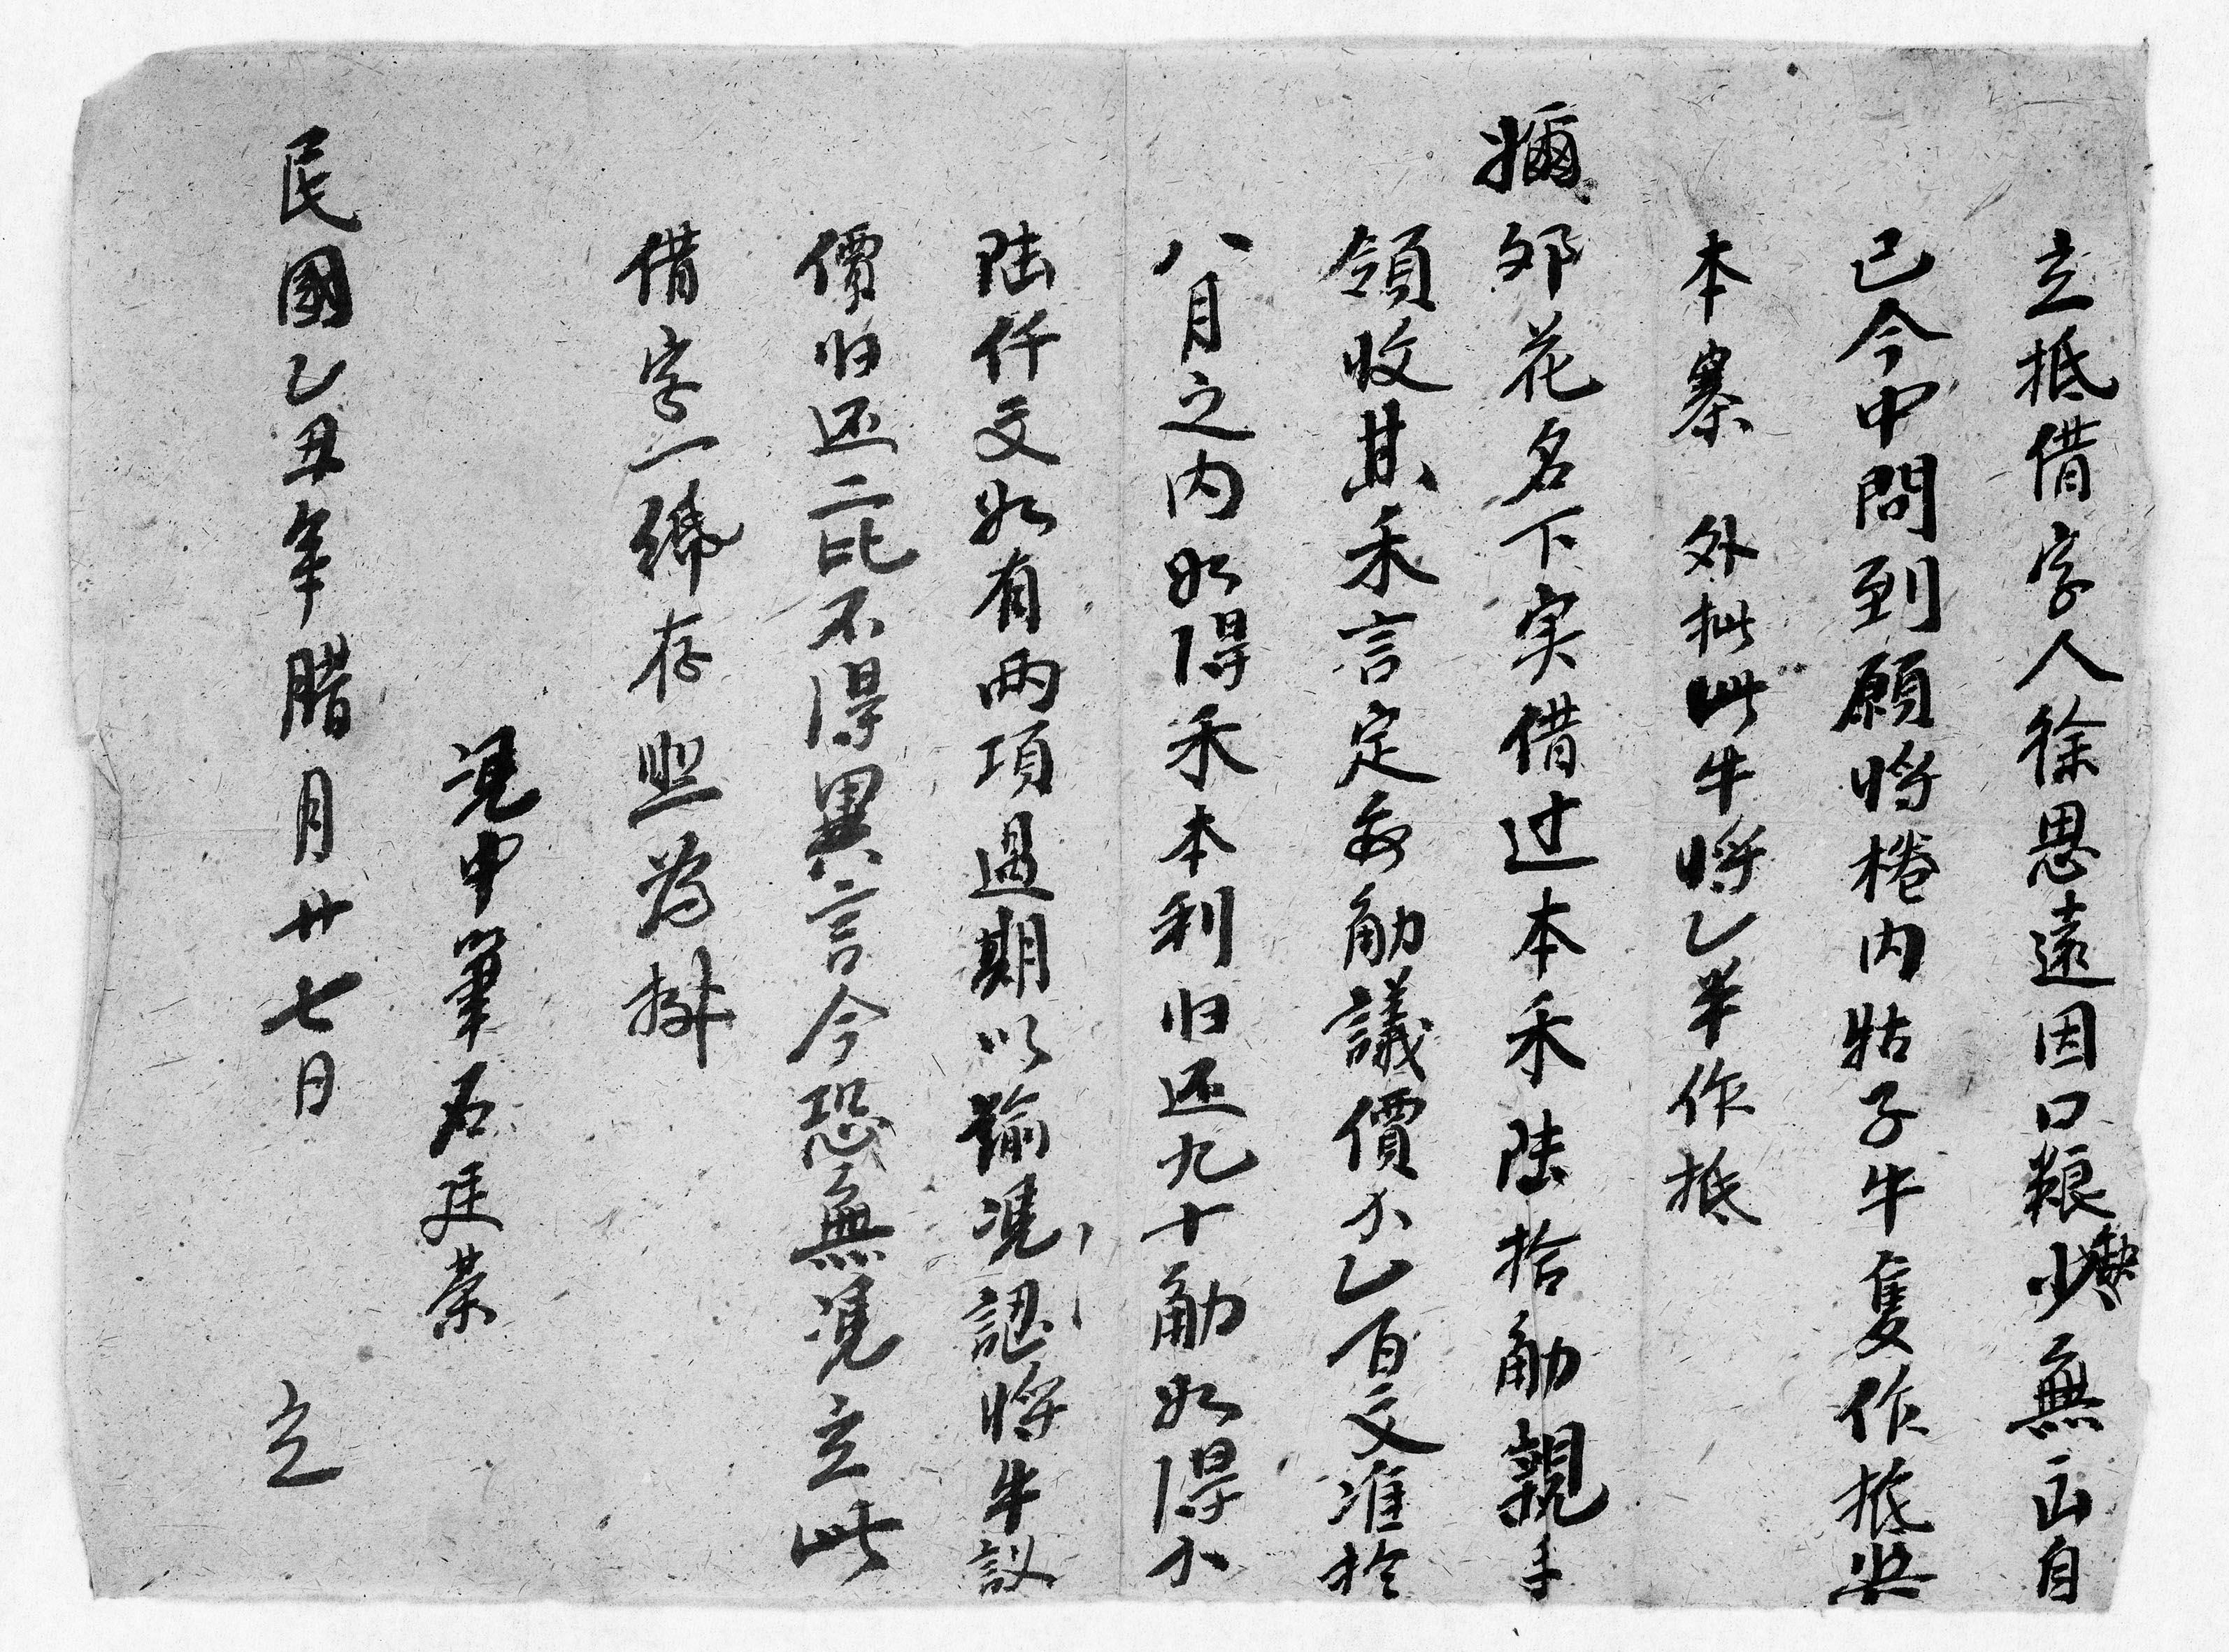 立抵借字人徐恩遠因口粮缺少無出自
己今中問到願将棬内牯子牛隻作抵與
本寨 外批此牛将乙半作抵
嬭邜花名下实借过本禾陆拾觔親手
領收其禾言定每觔議價小乙百文准於
八月之内如得禾本利归还九十觔如得小
陆仟文如有両項過期以踰凴認将牛議
價归还二比不得異言今恐無凴立此
借字一紙存照為拠
凴中筆石廷荣
民國乙丑年腊月廿七日 立